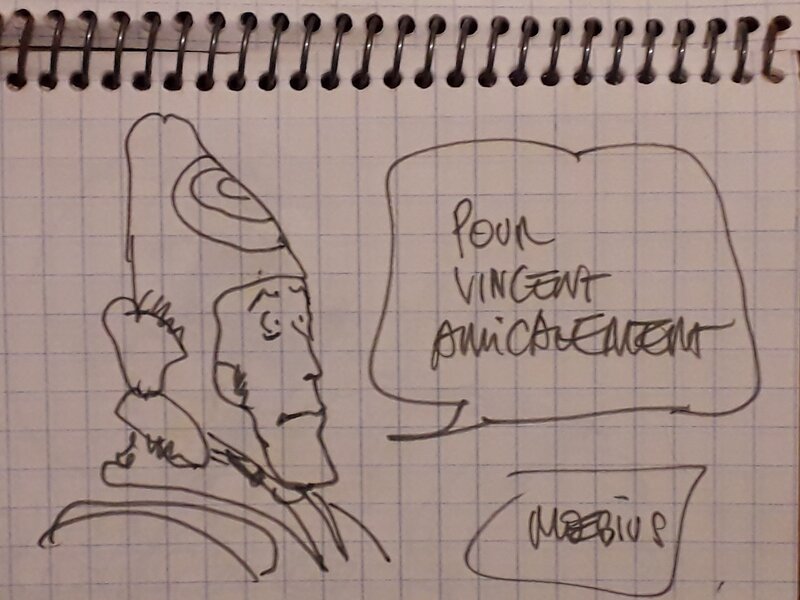 POUR
VINCENT
AMiCALEMENT
MOEBIUS